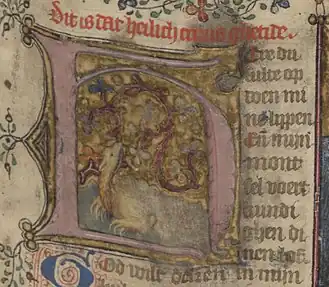 Dit is dat heilich cruus ghetide.
Here du
sulte op
doen mi
ne lippen
Eñ mijn
mont
sel voert
cundi
ghen di
nen lof.
God wilt in mijn